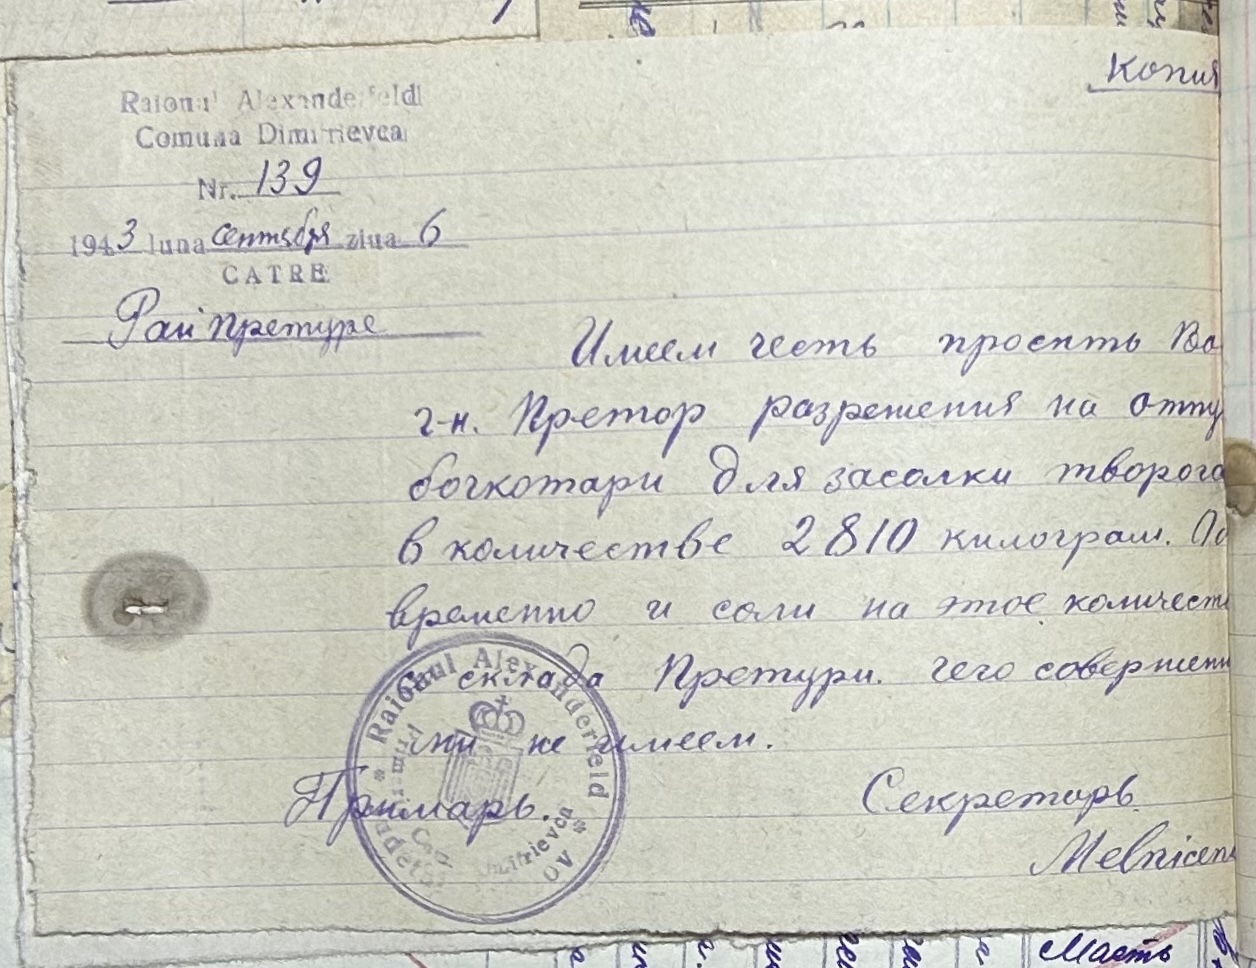 Копия
Raionul Alexanderfeld
Comuna Dimitrievca
Nr. 139
1943 luna сентября ziua 6
CATRE
Рай претуре
Имеем честь просить Ва
г-н. Претор разрешения на отпу
бочкотари для засолки творога
в количестве 2810 килограм.
временно и соли на этое количеств
склада Претури. чего совершенн
не имеем.
Примарь.
Секретарь
Melnicen
Raionul Alexanderfeld
Масть